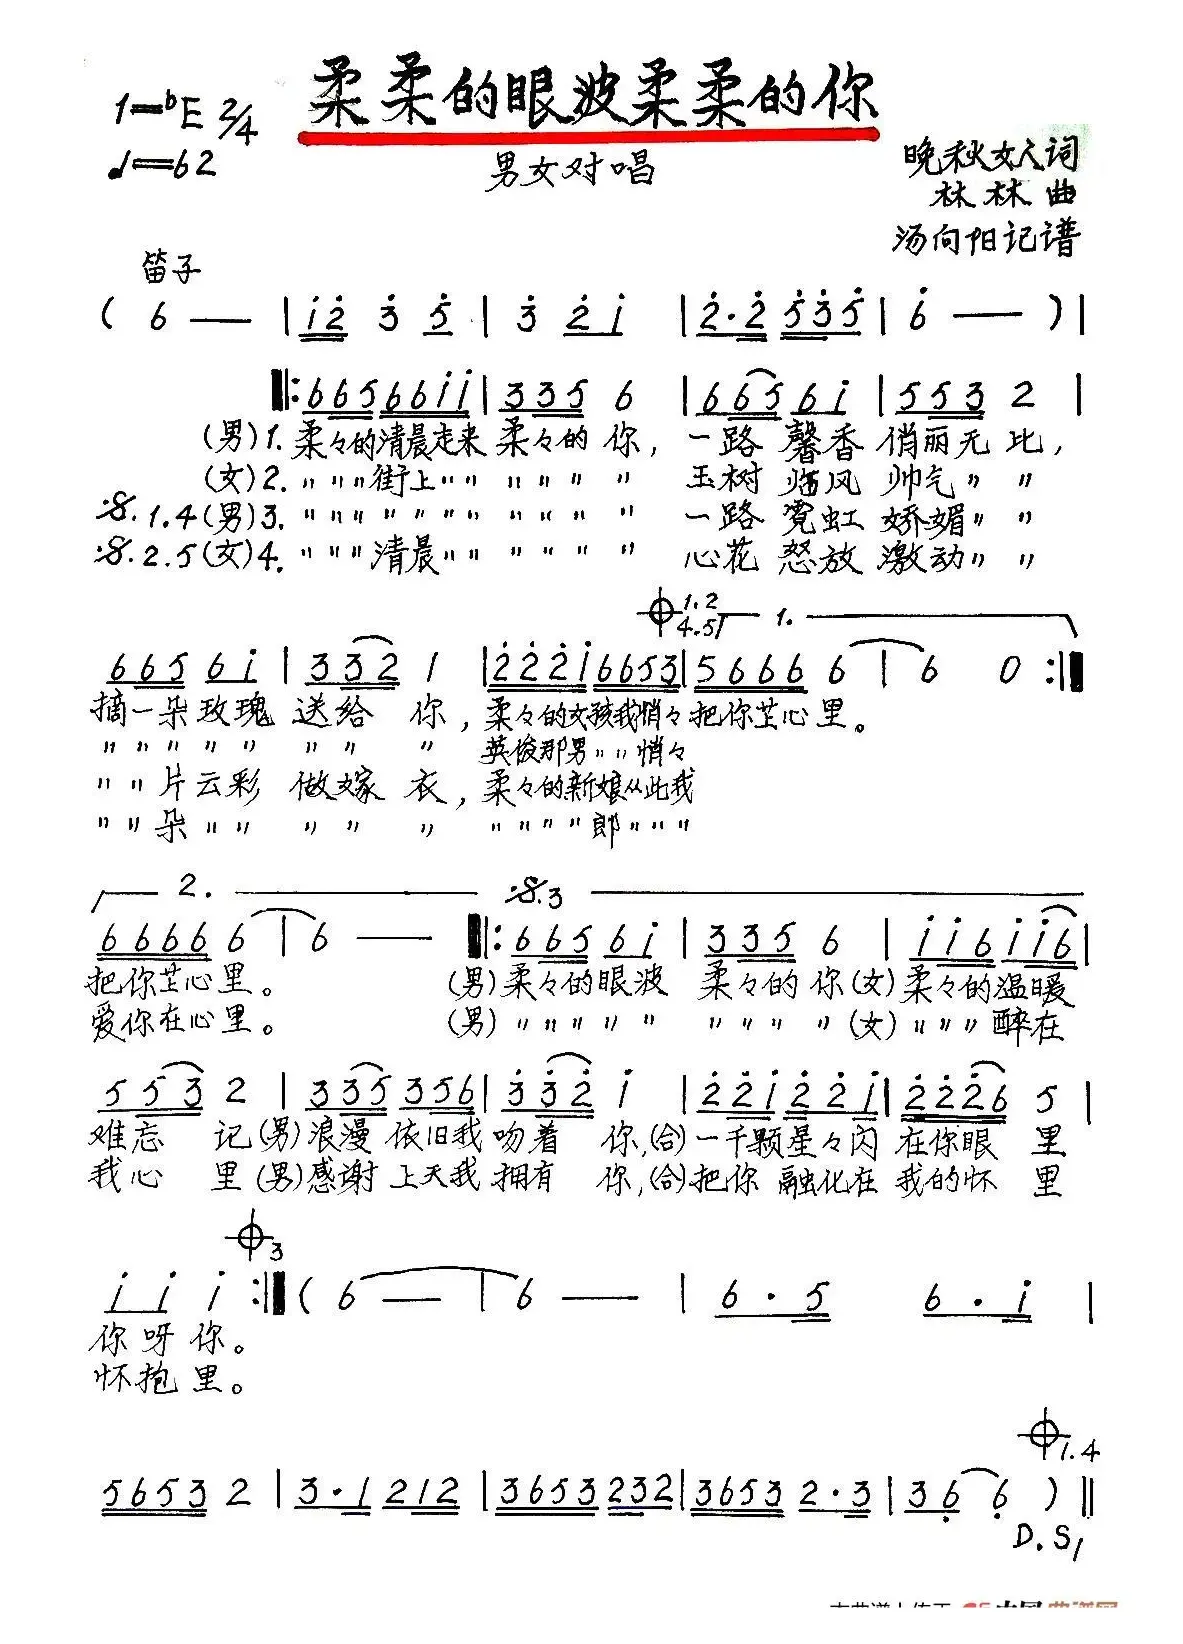 柔柔的眼波柔柔的你
1=ᵇE 2/4
♩=62
男女对唱
晚秋女人词
林林曲
汤向阳记谱
笛子
( 6 — | i̇ 2̇ 3̇ 5̇ | 3̇ 2̇ i̇ | 2̇·2̇ 5̇3̇5̇ | 6̇ — ) |
‖: 665 66ii | 335 6 | 665 6i | 553 2 |
(男)1. 柔々的清晨走来 柔々的 你, 一路 馨香 俏丽无 比,
(女)2. 〃〃〃街上〃〃 〃〃〃 〃 玉树 临风 帅气〃 〃
𝄋.1.4(男)3. 〃〃〃〃〃〃〃 〃〃〃 〃 一路 霓虹 娇媚〃 〃
𝄋.2.5(女)4. 〃〃〃清晨〃〃 〃〃〃 〃 心花 怒放 激动〃 〃
𝄌1.2 4.5 1.
665 6i | 332 1 | 2̇2̇2̇i 6653 | 5666 6 | 6 0 :‖
摘一朵玫瑰 送给 你, 柔々的女孩我悄々把你芷心里。
〃〃〃〃〃 〃〃 〃 英俊那男〃〃悄々
〃〃片云彩 做嫁 衣, 柔々的新娘从此我
〃〃朵〃〃 〃〃 〃 〃〃〃〃郎〃〃〃
2. 𝄋.3
6666 6 | 6 — ‖: 665 6i | 335 6 | ii6 ii6 |
把你芷心里。 (男)柔々的眼波 柔々的 你(女)柔々的温暖
爱你在心里。 (男)〃〃〃〃〃 〃〃〃 〃(女)〃〃〃醉在
553 2 | 335 356 | 3̇3̇2̇ i | 2̇2̇i 2̇2̇i | 2̇2̇2̇6 5 |
难忘 记(男)浪漫 依旧我 吻着 你,(合)一千颗星々闪 在你眼 里
我心 里(男)感谢 上天我 拥有 你,(合)把你 融化在 我的怀 里
𝄌3
i i i :‖ ( 6 — | 6 — | 6·5 6·i |
你呀你。
怀抱里。
𝄌1.4
5653 2 | 3·1 212 | 3653 232 | 3653 2·3 | 36̣ 6̣ ) ‖
D.S/